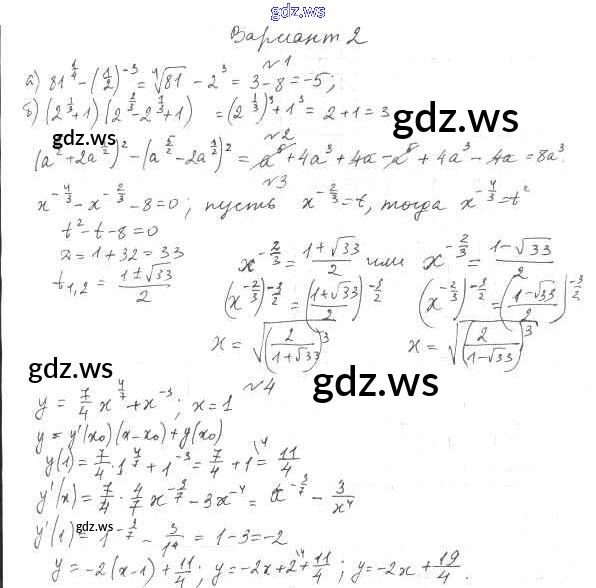 gdz.ws
Вариант 2
№1
а) 81^{1/4} - (1/2)^{-3} = ⁴√81 - 2³ = 3 - 8 = -5;
б) (2^{1/3}+1)(2^{2/3} - 2^{1/3}+1) = (2^{1/3})³ + 1³ = 2 + 1 = 3
gdz.ws
gdz.ws
№2
(a^{5/2} + 2a^{1/2})² - (a^{5/2} - 2a^{1/2})² = a⁵ + 4a³ + 4a - a⁵ + 4a³ - 4a = 8a³.
№3
x^{-4/3} - x^{-2/3} - 8 = 0; пусть x^{-2/3} = t, тогда x^{-4/3} = t²
t² - t - 8 = 0
D = 1 + 32 = 33
t_{1,2} = (1±√33)/2
x^{-2/3} = (1+√33)/2 или x^{-2/3} = (1-√33)/2
(x^{-2/3})^{-3/2} = ((1+√33)/2)^{-3/2} (x^{-2/3})^{-3/2} = ((1-√33)/2)^{-3/2}
x = √(2/(1+√33))³ x = √(2/(1-√33))³
gdz.ws
gdz.ws
№4
y = 7/4 x^{4/7} + x^{-3}; x = 1
y = y'(x₀)(x-x₀) + y(x₀)
y(1) = 7/4 · 1^{4/7} + 1^{-3} = 7/4 + 1^{\4} = 11/4
y'(x) = 7/4 · 4/7 x^{-3/7} - 3x^{-4} = x^{-3/7} - 3/x⁴
y'(1) = 1^{-3/7} - 3/1⁴ = 1 - 3 = -2
gdz.ws
y = -2(x-1) + 11/4; y = -2x + 2^{\4} + 11/4; y = -2x + 19/4
gdz.ws